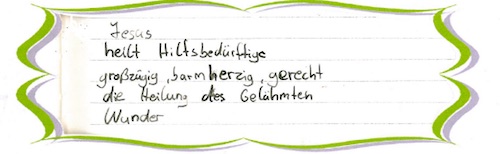 Jesus
heilt Hilfsbedürftige
großzügig, barmherzig, gerecht
die Heilung des Gelähmten
Wunder